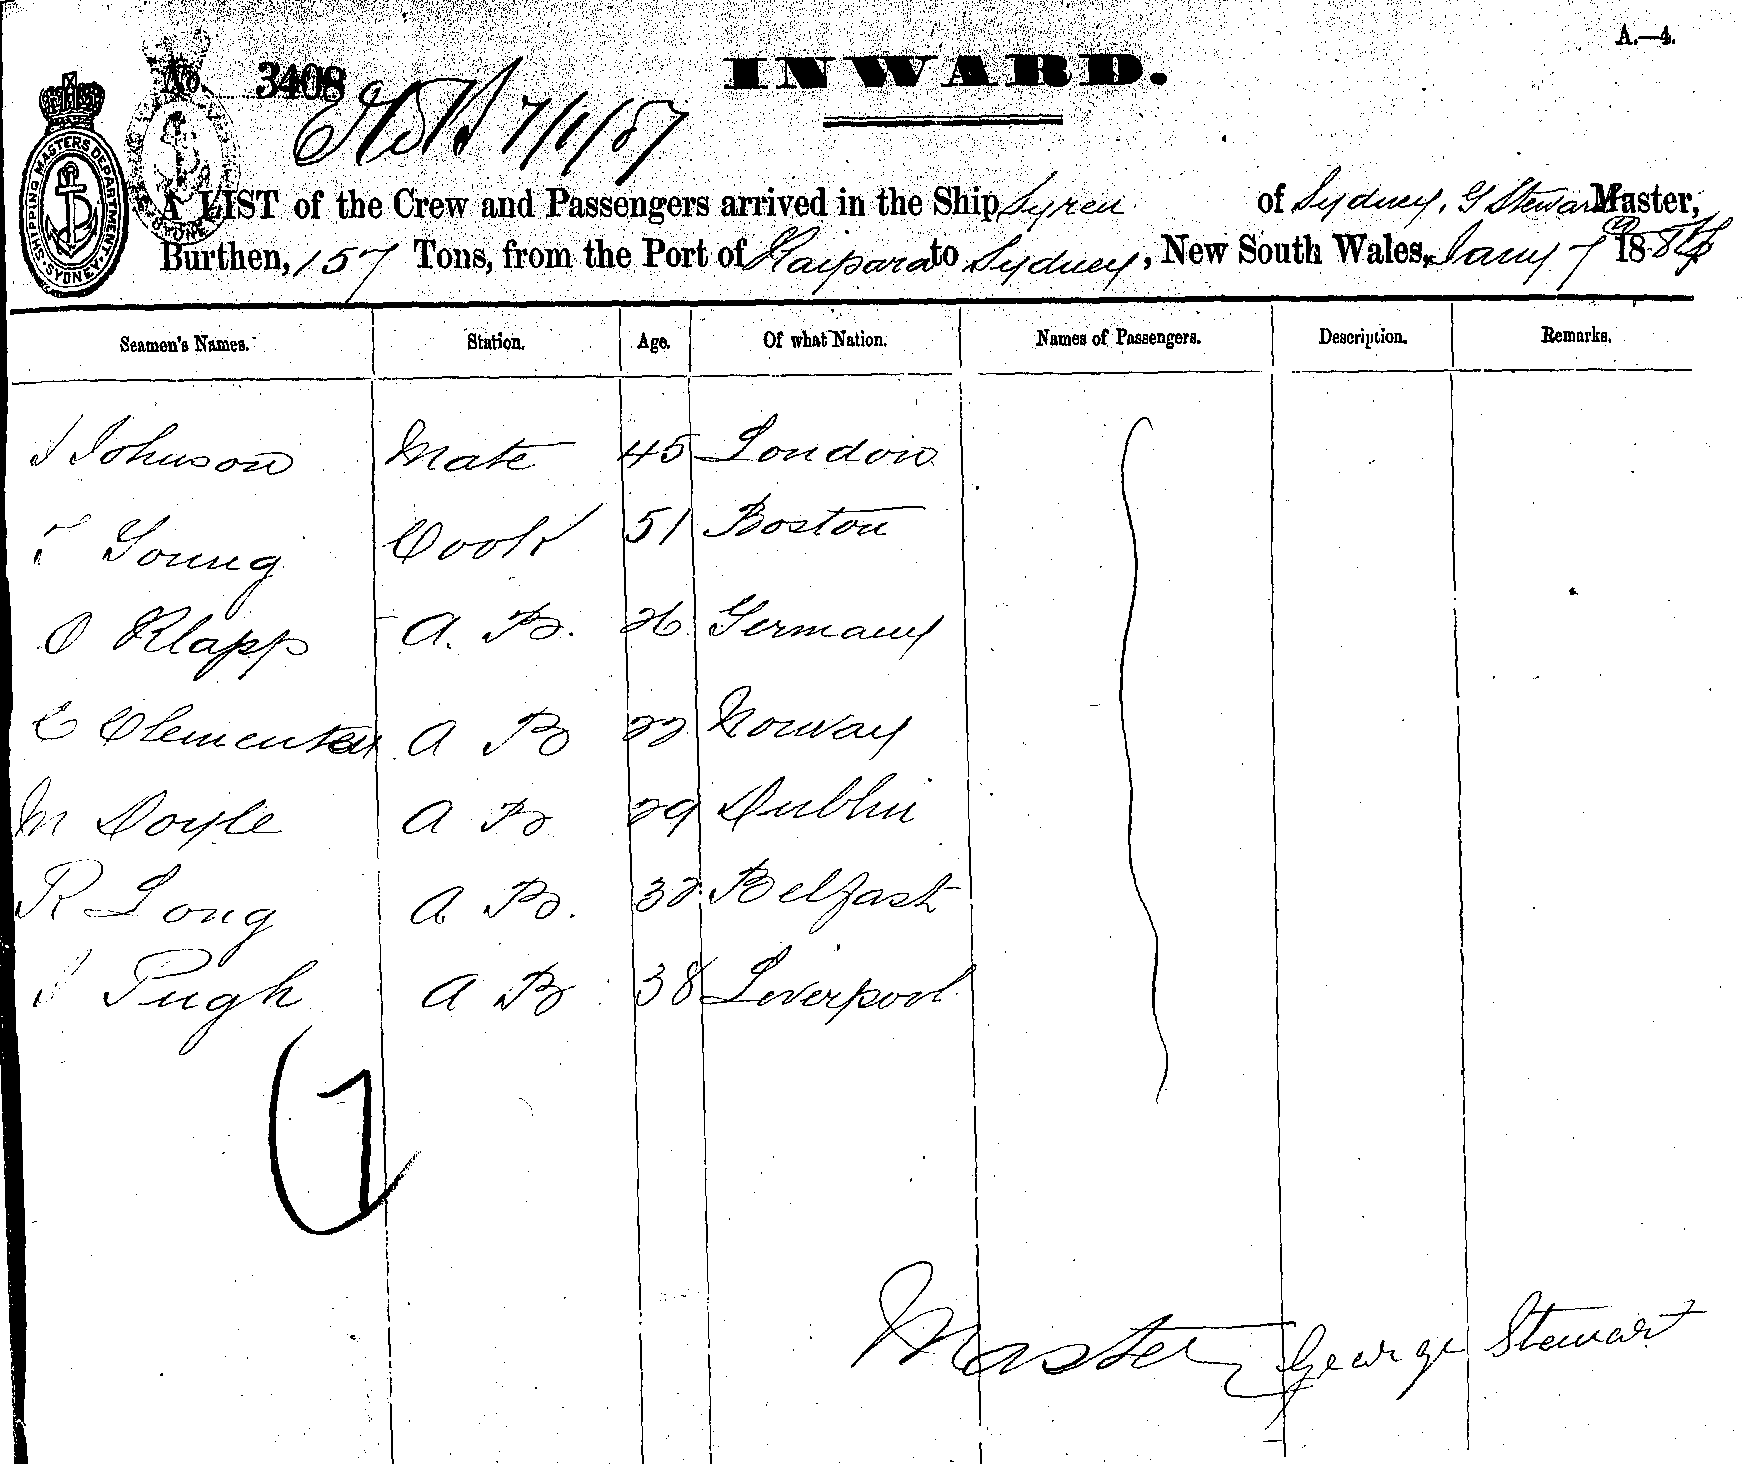 A.—4.
No. 3408 INWARD.
7/1/87
SHIPPING MASTERS DEPARTMENT SYDNEY
A LIST of the Crew and Passengers arrived in the Ship Syren of Sydney, G Stewart Master,
Burthen, 157 Tons, from the Port of Kaipara to Sydney, New South Wales, Jany 7th 188
Seamen's Names. Station. Age. Of what Nation. Names of Passengers. Description. Remarks.
J Johnson Mate 45 London
T Young Cook 51 Boston
O Klapp A. B. 26 Germany
C Clementsen A B 22 Norway
M Doyle A B 29 Dublin
R Long A B. 32 Belfast
J Pugh A B 38 Liverpool
7
Master George Stewart